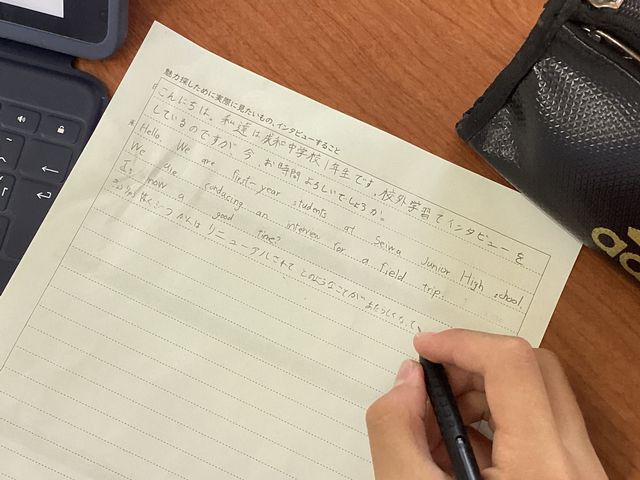 魅力探しために実際に見たいもの、インタビューすること
こんにちは。私達は 中学校1年生です。校外学習でインタビューを
しているのですが、今、お時間よろしいでしょうか。
Hello We are first-year students at Seiwa Junior High school
We the conducing an interview for a field trip.
Is now a good time?
はくぶつかんは リニューアルされて どのようなことが